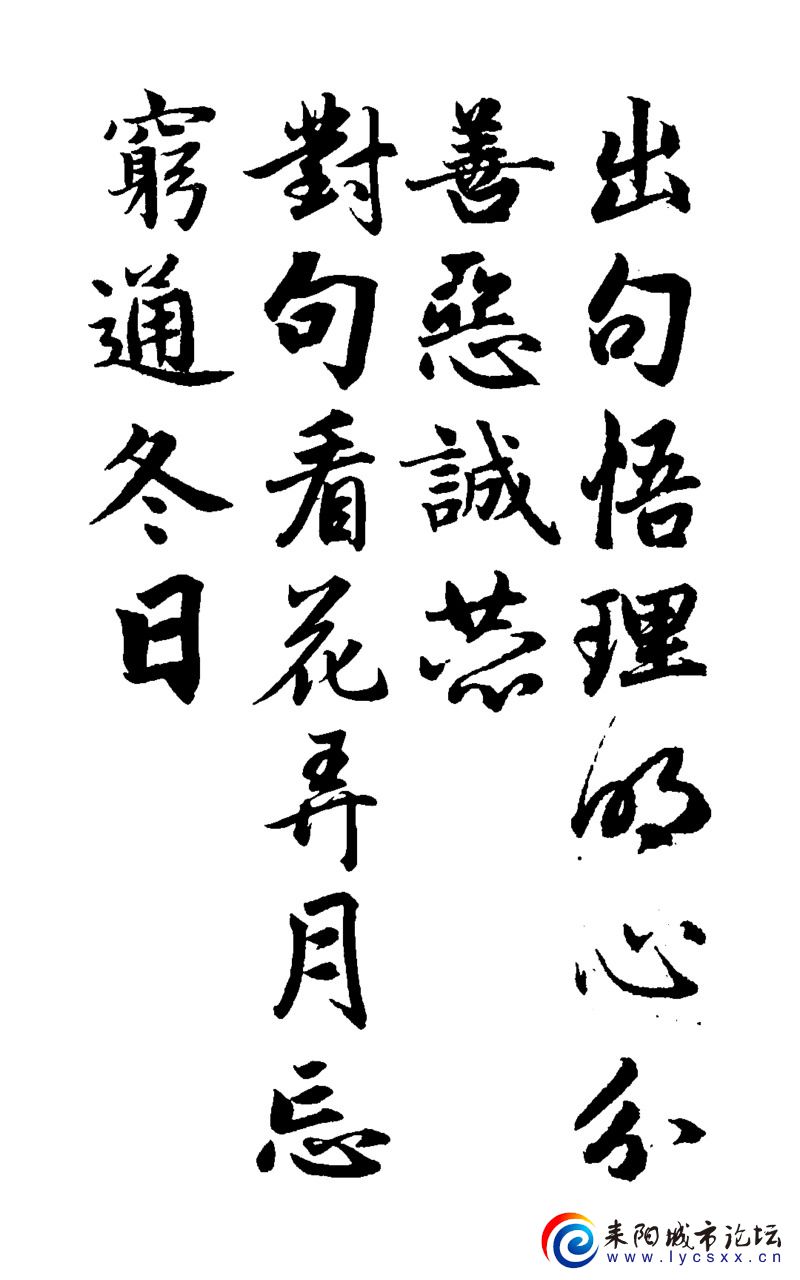 出句悟理明心分
善惡誠恭
對句看花弄月忘
窮通冬日
耒阳城市论坛
www.lycsxx.cn